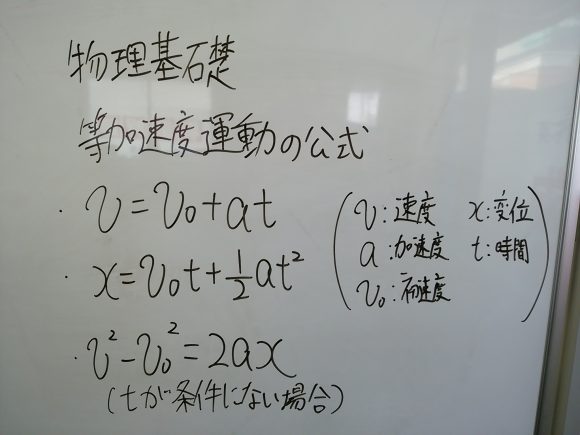 物理基礎
等加速度運動の公式
・v=v₀+at
・x=v₀t+½at²
・v²-v₀²=2ax
(tが条件にない場合)
(v:速度 x:変位
a:加速度 t:時間
v₀:初速度)